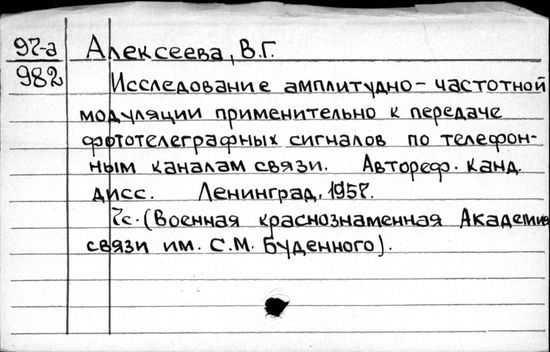 97-а Алексеева, В.Г.
982 Исследование амплитудно-частотной
модуляции применительно к передаче
фототелеграфных сигналов по телефон-
ным каналам связи. Автореф. канд.
дисс. Ленинград, 1957.
7с. (Военная краснознаменная Академия
связи им. С.М. Буденного).